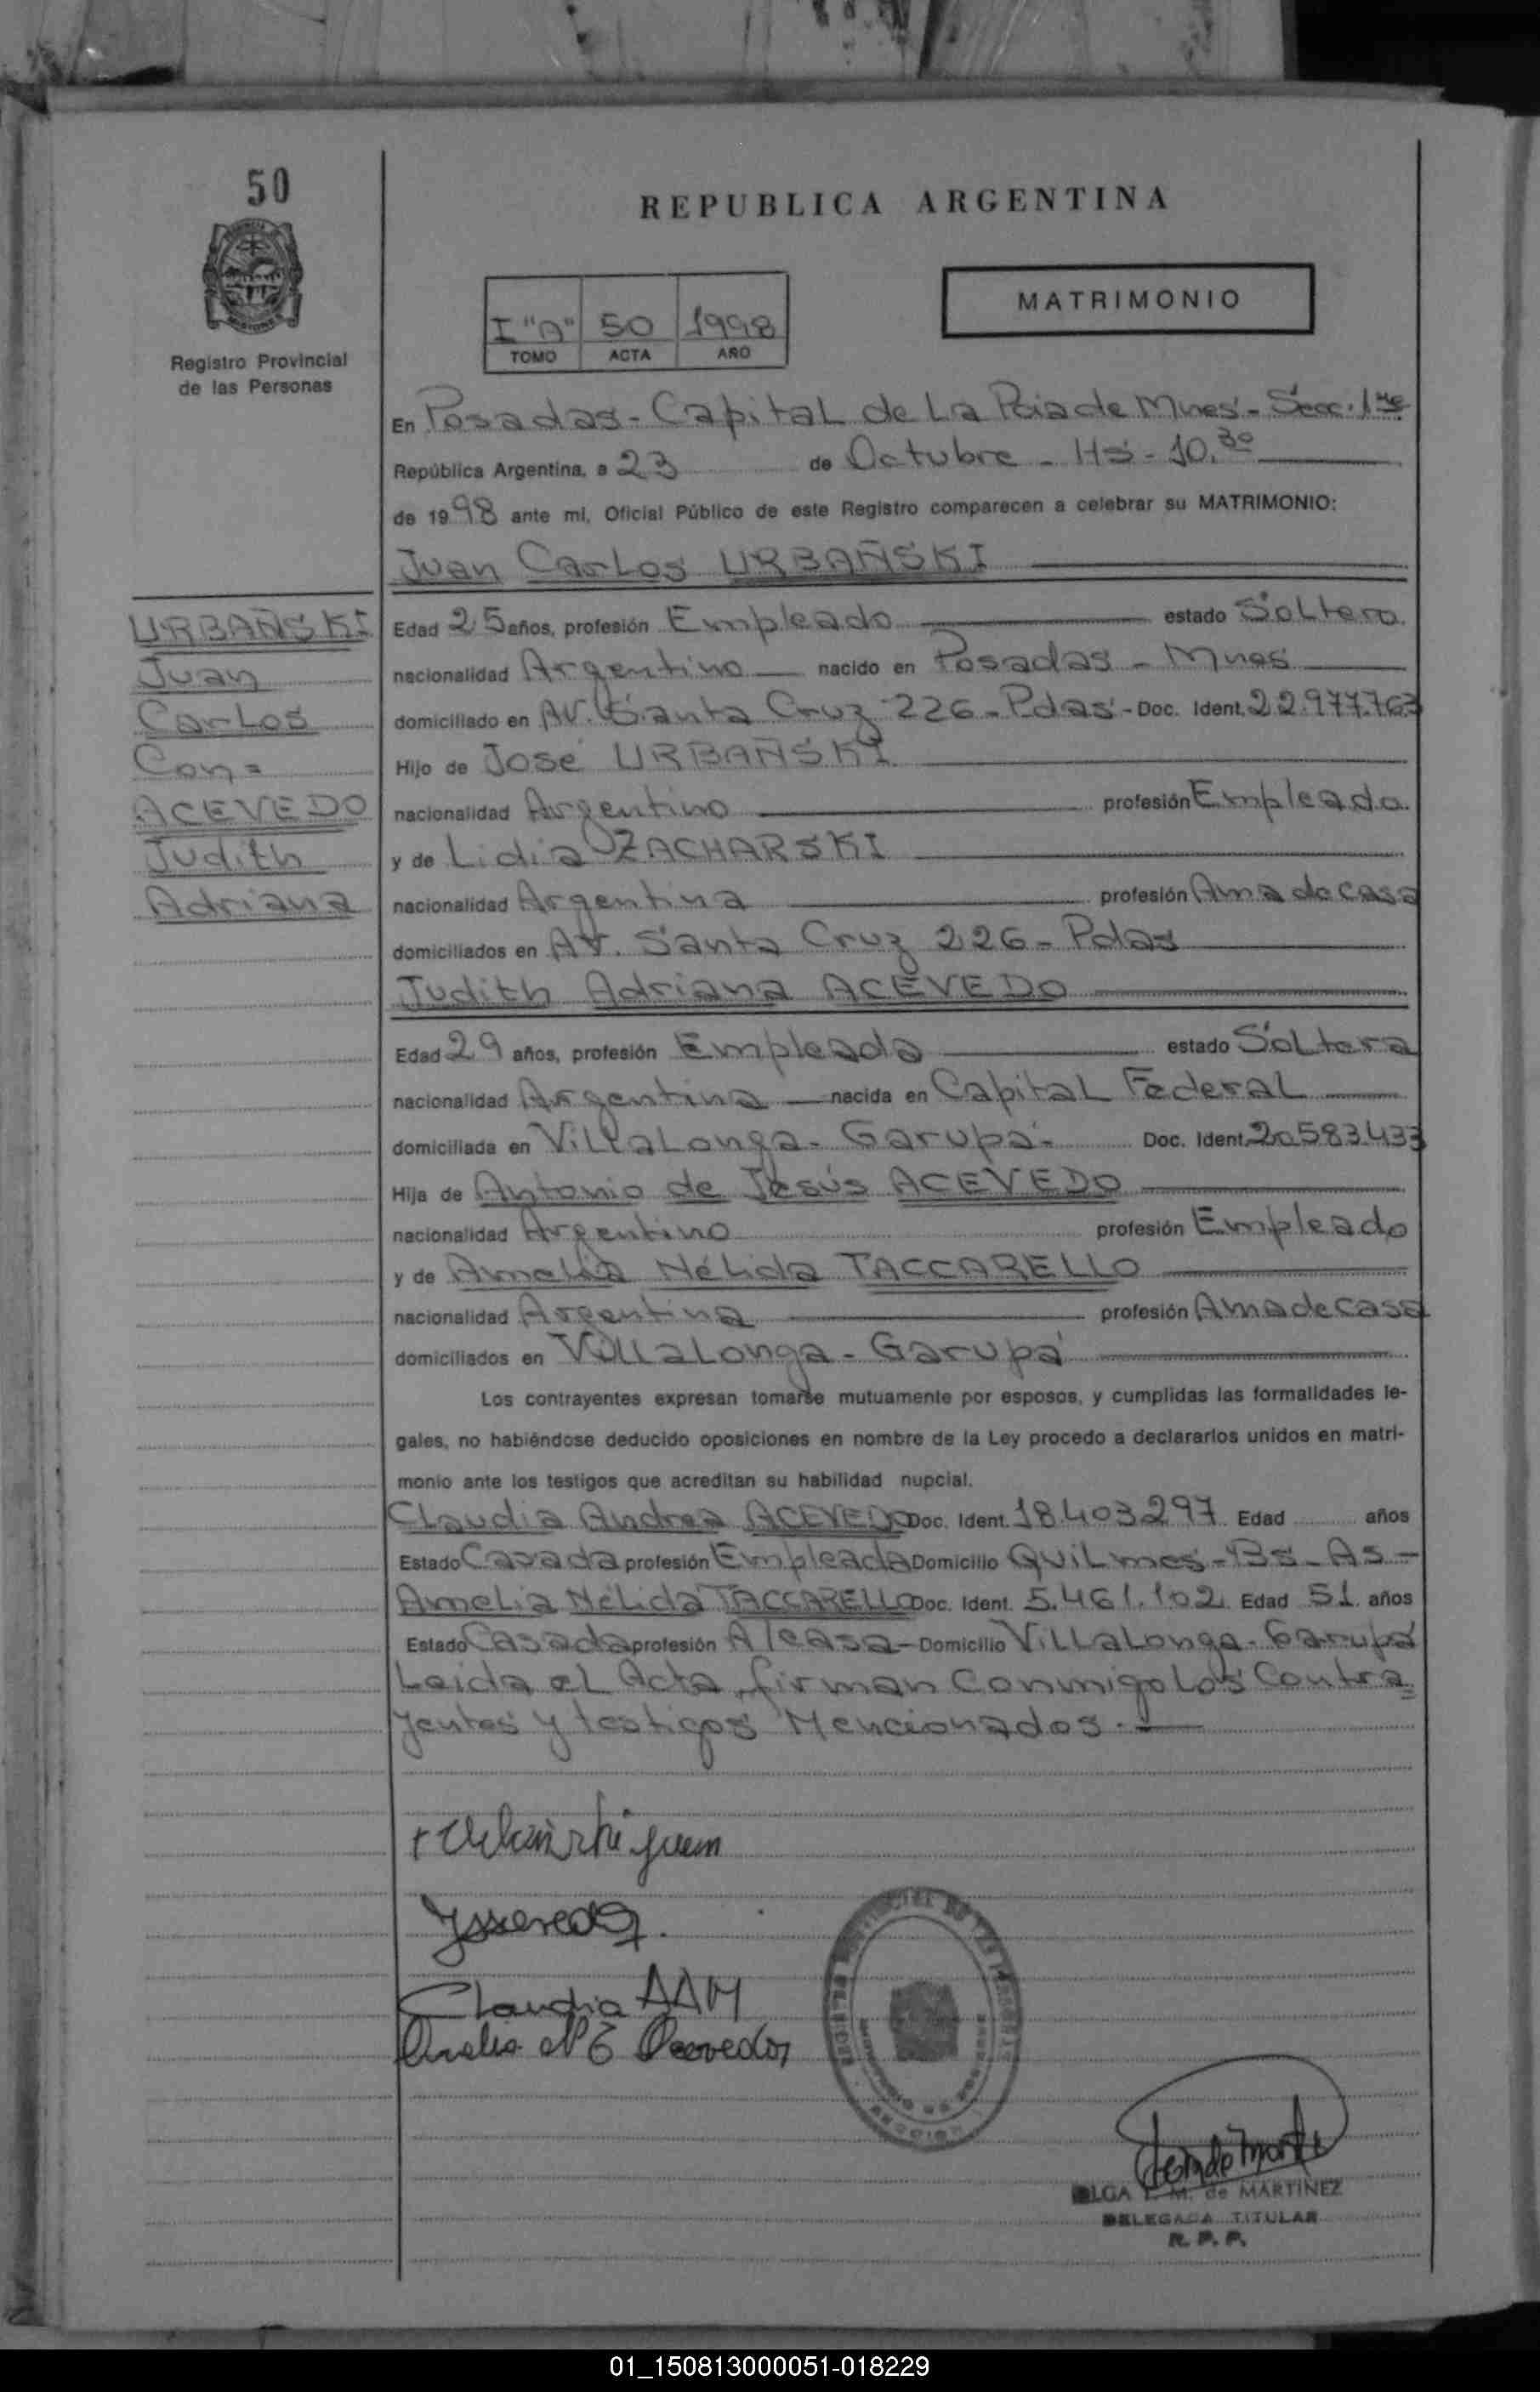 50
REPUBLICA ARGENTINA
MATRIMONIO
I "A" 50 1998
TOMO ACTA AÑO
Registro Provincial
de las Personas
En Posadas - Capital de La Pcia de Mnes - Secc. 1
República Argentina, a 23 de Octubre - Hs - 10,30
de 1998 ante mi, Oficial Público de este Registro comparecen a celebrar su MATRIMONIO:
Juan Carlos URBAÑSKI
URBAÑSKI
Juan
Carlos
Con =
ACEVEDO
Judith
Adriana
Edad 25 años, profesión Empleado estado Soltero
nacionalidad Argentino nacido en Posadas - Mnes
domiciliado en AV. Santa Cruz 226 - Pdas - Doc. Ident. 22.977.763
Hijo de José URBAÑSKI
nacionalidad Argentino profesión Empleado
y de Lidia ZACHARSKI
nacionalidad Argentina profesión Ama de casa
domiciliados en AV. Santa Cruz 226 - Pdas
Judith Adriana ACEVEDO
Edad 29 años, profesión Empleada estado Soltera
nacionalidad Argentina nacida en Capital Federal
domiciliada en VillaLonga - Garupá - Doc. Ident. 20583433
Hija de Antonio de Jesús ACEVEDO
nacionalidad Argentino profesión Empleado
y de Amelia Nélida TACCARELLO
nacionalidad Argentina profesión Ama de casa
domiciliados en VillaLonga - Garupá
Los contrayentes expresan tomarse mutuamente por esposos, y cumplidas las formalidades le-
gales, no habiéndose deducido oposiciones en nombre de la Ley procedo a declararlos unidos en matri-
monio ante los testigos que acreditan su habilidad nupcial.
Claudia Andrea ACEVEDO Doc. Ident. 18.403.297 Edad años
Estado Casada profesión Empleada Domicilio Quilmes - Bs - As -
Amelia Nélida TACCARELLO Doc. Ident. 5.461.102 Edad 51 años
Estado Casada profesión A/casa - Domicilio VillaLonga - Garupá
Leida el Acta, firman Conmigo Los Contra=
yentes y testigos Mencionados. -
Claudia AAM
OLGA de MARTINEZ
DELEGADA TITULAR
R. P. P.
01_150813000051-018229